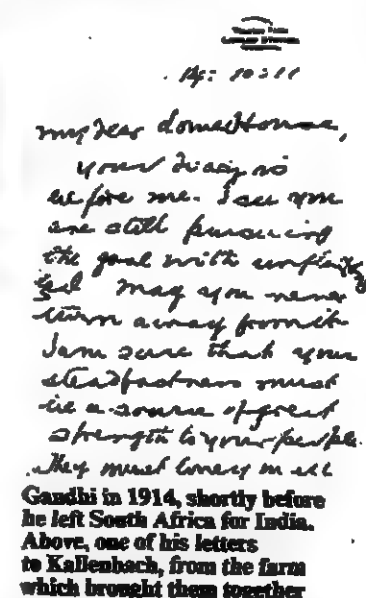 Tolstoy Farm
14: 10: 11
my dear Lower House,
your diary is
before me. I see you
are still pursuing
the goal with unflinching
zeal. May you never
turn away from it.
I am sure that your
steadfastness must
be a source of great
strength to your people.
They must
Gandhi in 1914, shortly before
he left South Africa for India.
Above, one of his letters
to Kallenbach, from the farm
which brought them together